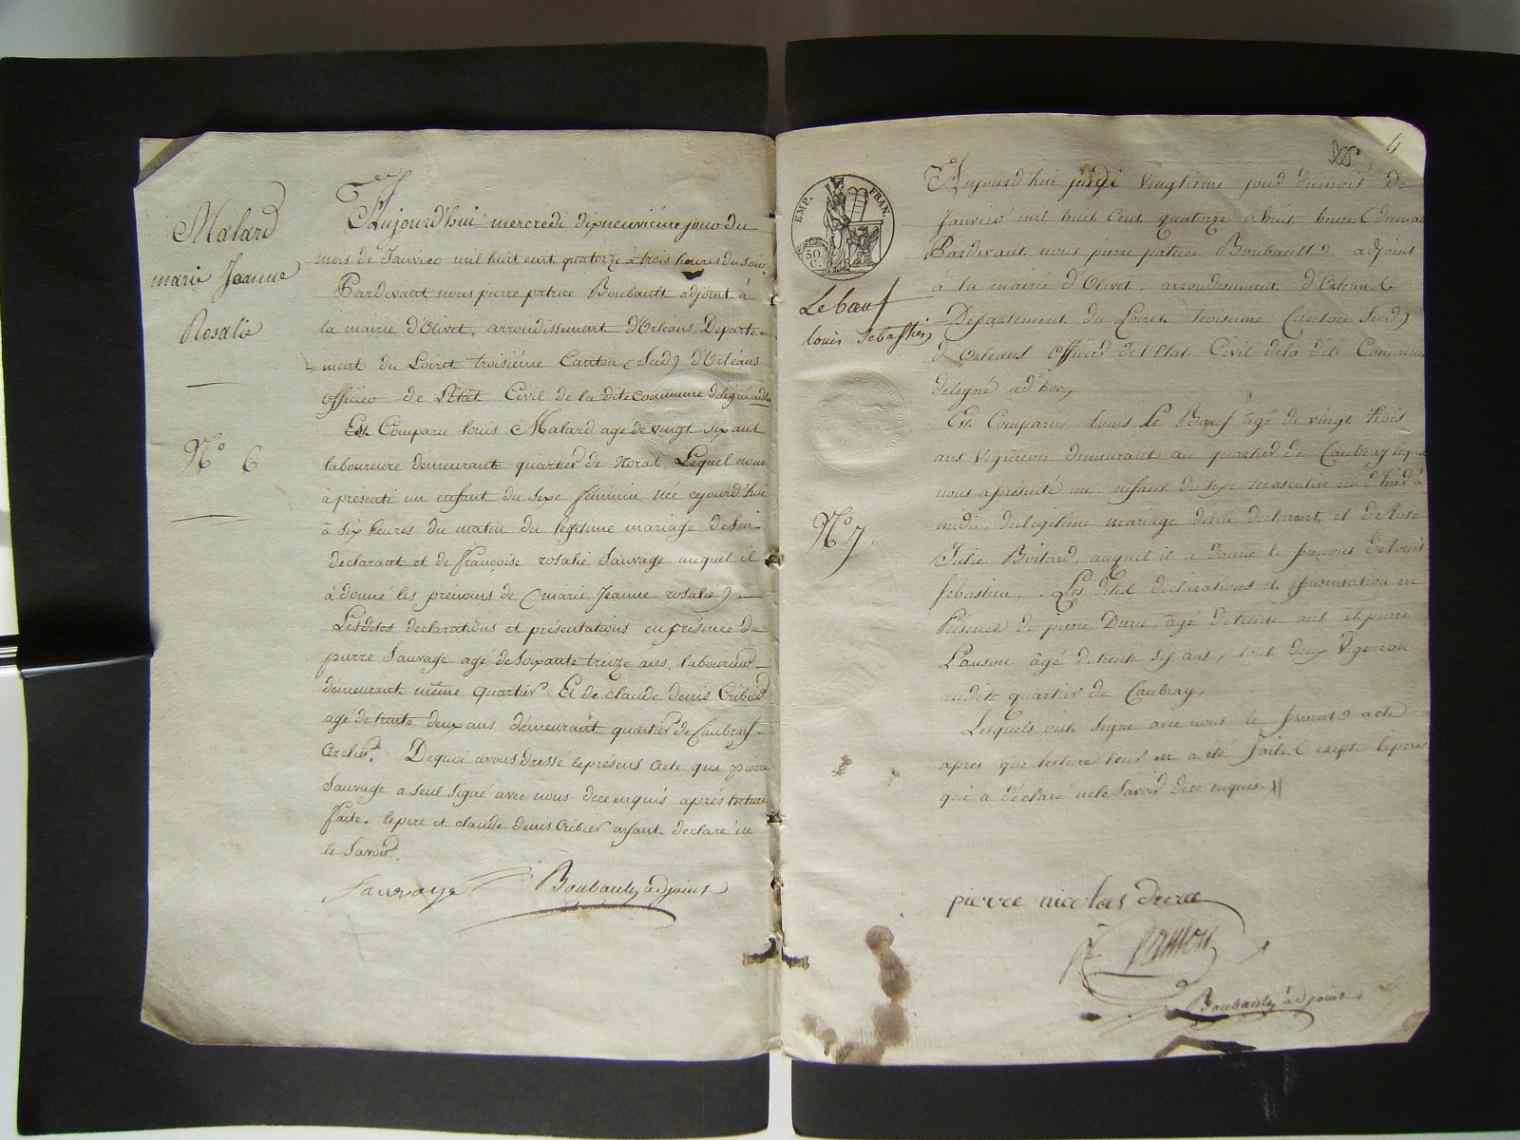 Malard
marie Jeanne
Rosalie
N.º 6
Aujourd'hui mercredi dixneuvième jour du
mois de Janvier mil huit cent quatorze à trois heures du soir
Pardevant nous pierre patrice Boubault adjoint à
la mairie d'Olivet, arrondissement d'Orléans, Departe-
ment du Loiret troisième Canton (Sud) d'Orléans
officier de l'Etat Civil de la dite commune délégué adhoc
Est Comparu louis Malard age de vingt six ans
laboureur demeurant quartier de Lequel nous
à présenté un enfant du sexe féminin née cejourd'hui
à six heures du matin du légitime mariage de lui
declarant et de françoise rosalie Sauvage auquel il
à donné les prénoms de (marie Jeanne rosalie)
Lesdites declarations et présentations en présence de
pierre Sauvage agé de soixante treize ans, laboureur
demeurant même quartier. Et de claude denis Cribier
agé de trente deux ans demeurant quartier de Caubray
Dequoi avons dressé le présent acte que pierre
Sauvage a seul signé avec nous de ce enquis après lecture
faite. le pere et claude denis Cribier ayant declaré ne
le savoir.
Sauvage Boubault adjoint
4
EMP. FRAN.
50 C.
Lebœuf
louis Sebastien
N.º 7.
Aujourd'hui jeudi vingtieme jour du mois de
Janvier mil huit cent quatorze heures du
Pardevant nous pierre patrice Boubault adjoint
à la mairie d'Olivet, arrondissement d'Orleans
Departement du Loiret troisieme (Canton Sud)
d'Orleans officier de l'Etat Civil de la dite Commune
délégué ad hoc,
Est Comparu louis Le Bœuf âgé de vingt trois
ans Vigneron demeurant au quartier de Caubray lequel
nous a présenté un enfant du sexe masculin né d'hier à
midi, du légitime mariage de lui declarant, et de Rose
Julie Boitard, auquel il a donné le prenoms de louis
sebastien, Les dites declarations et presentation en
Présence de pierre Duru âgé de trente ans et pierre
Pauson âgé de trente six ans, tout deux Vigneron
audite quartier de Caubray,
Lesquels ont signé avec nous le present acte
apres que lecture leur en a eté faite, excepté le pere
qui a déclaré ne le savoir de ce enquis.
pierre nicolas duru
Boubault adjoint